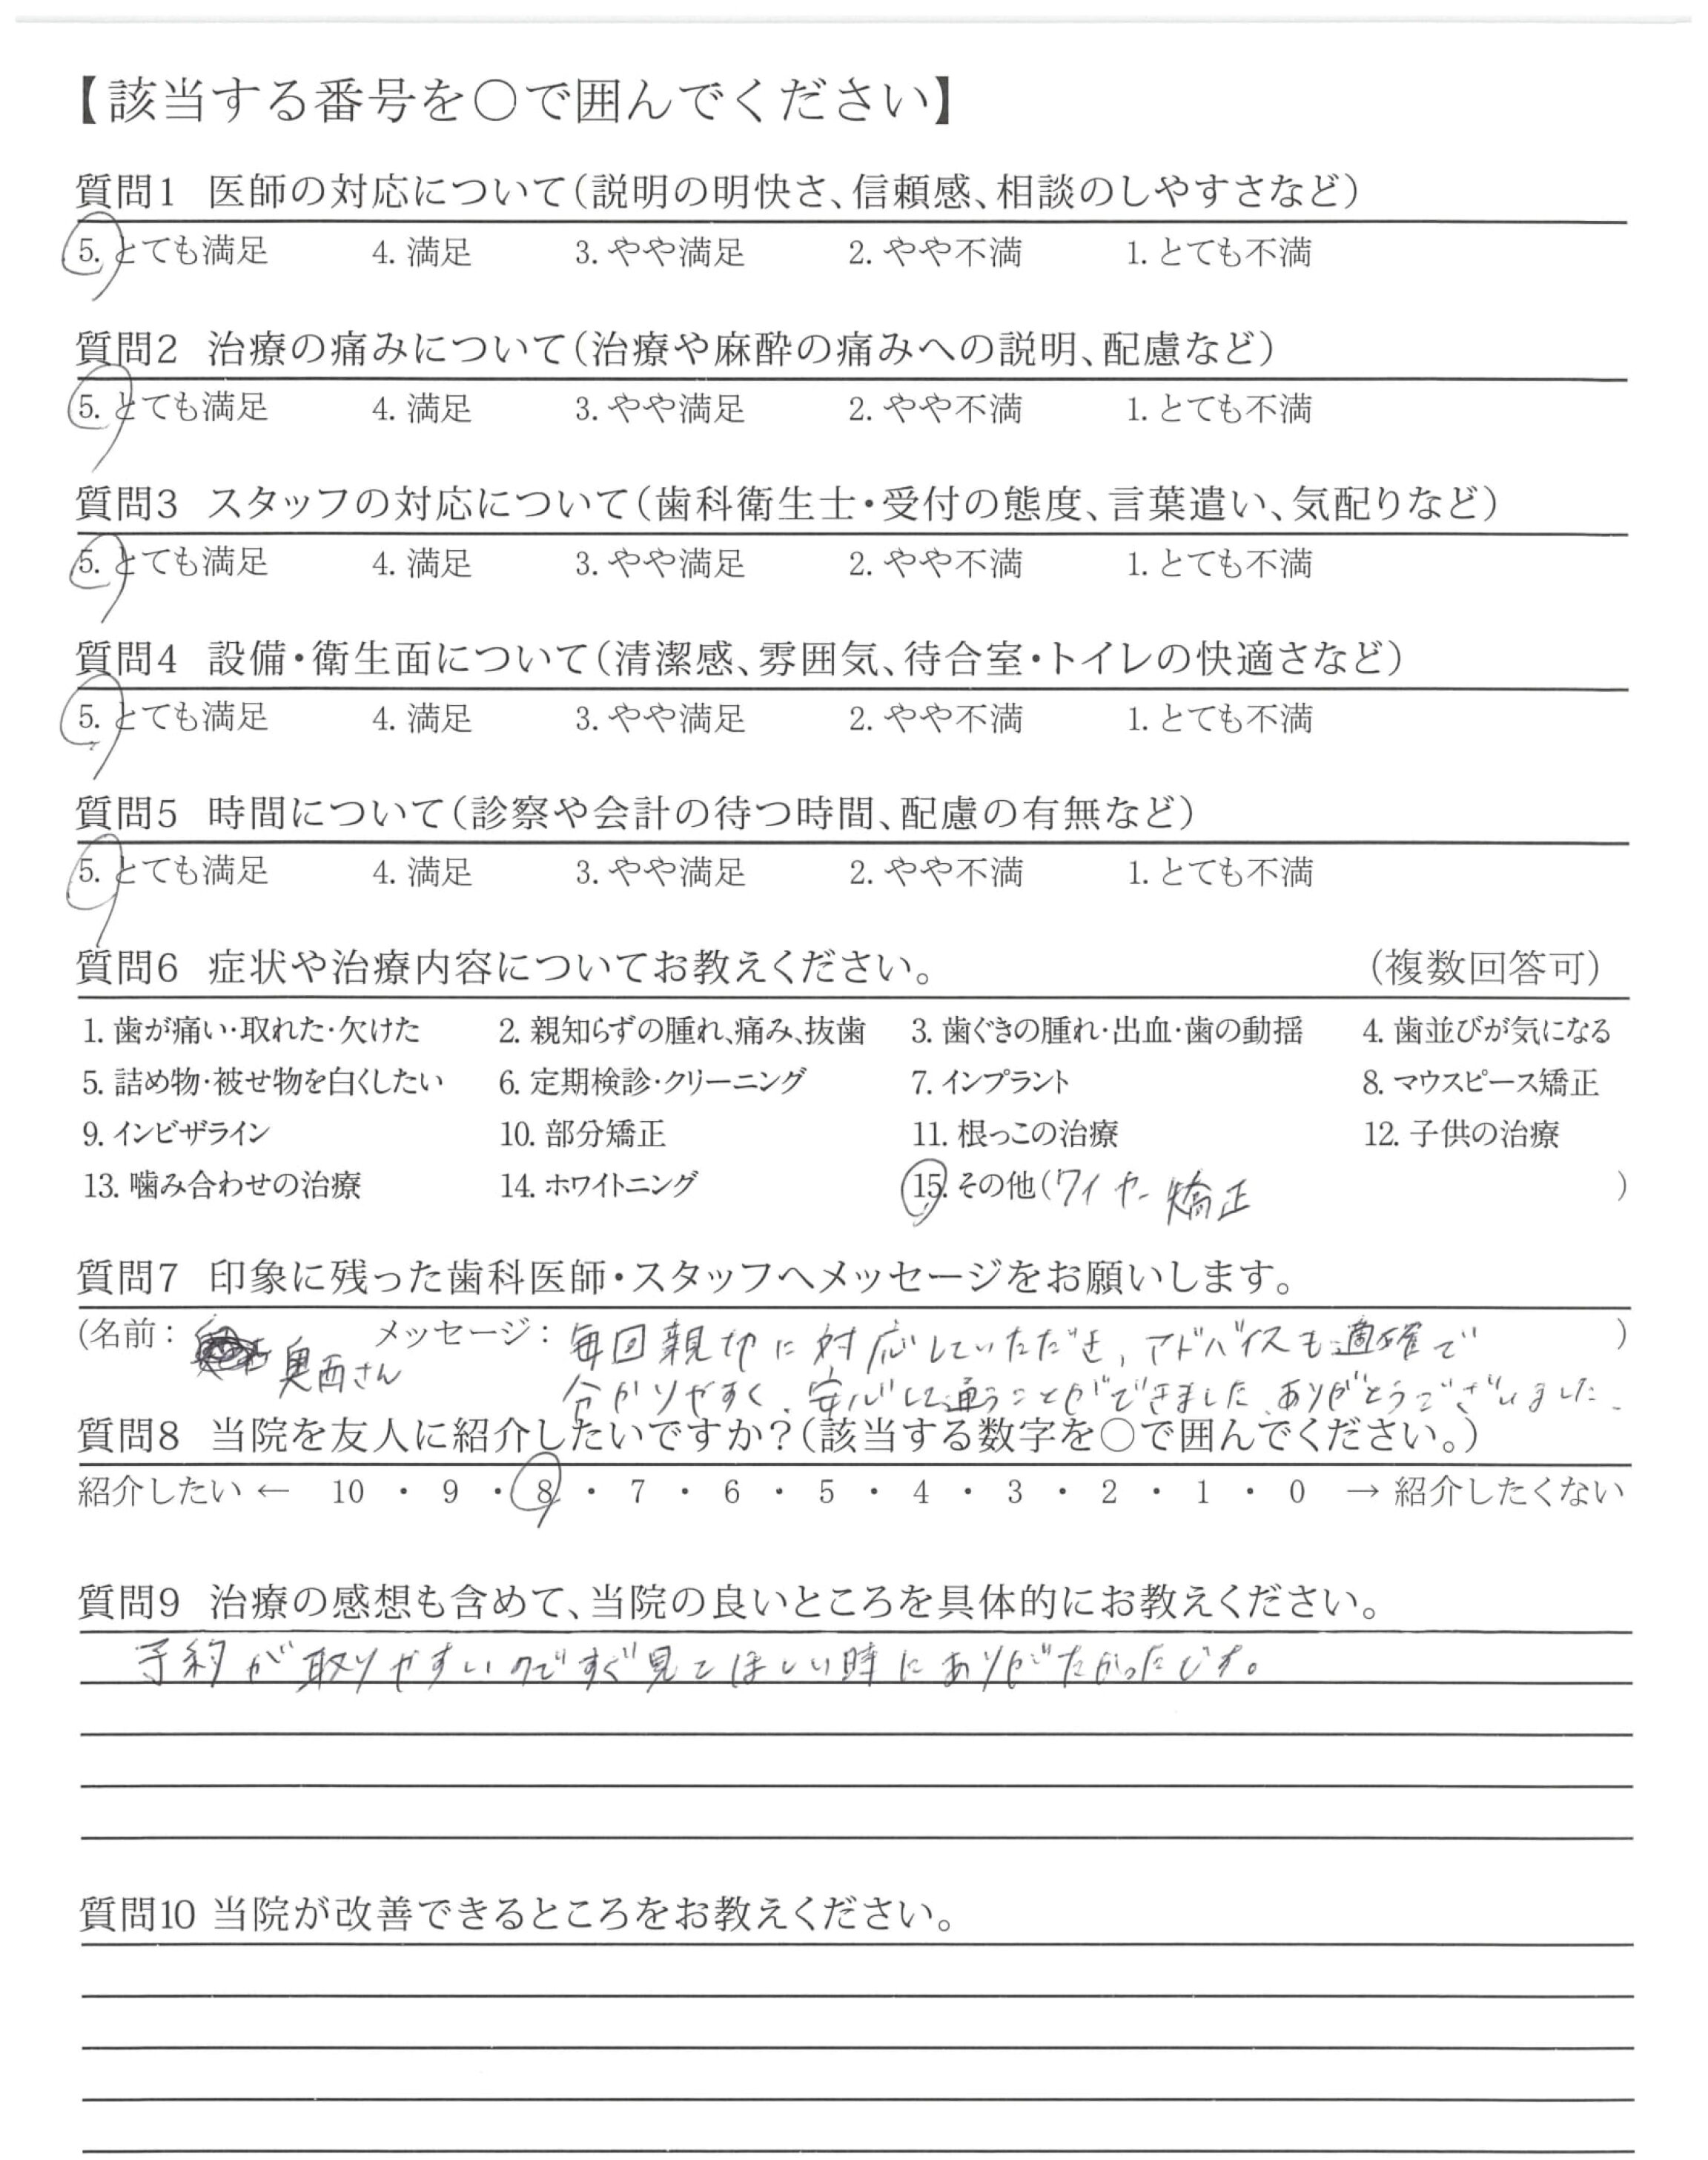 【該当する番号を〇で囲んでください】
質問1 医師の対応について(説明の明快さ、信頼感、相談のしやすさなど)
5. とても満足 4. 満足 3. やや満足 2. やや不満 1. とても不満
質問2 治療の痛みについて(治療や麻酔の痛みへの説明、配慮など)
5. とても満足 4. 満足 3. やや満足 2. やや不満 1. とても不満
質問3 スタッフの対応について(歯科衛生士・受付の態度、言葉遣い、気配りなど)
5. とても満足 4. 満足 3. やや満足 2. やや不満 1. とても不満
質問4 設備・衛生面について(清潔感、雰囲気、待合室・トイレの快適さなど)
5. とても満足 4. 満足 3. やや満足 2. やや不満 1. とても不満
質問5 時間について(診察や会計の待つ時間、配慮の有無など)
5. とても満足 4. 満足 3. やや満足 2. やや不満 1. とても不満
質問6 症状や治療内容についてお教えください。 (複数回答可)
1. 歯が痛い・取れた・欠けた 2. 親知らずの腫れ、痛み、抜歯 3. 歯ぐきの腫れ・出血・歯の動揺 4. 歯並びが気になる
5. 詰め物・被せ物を白くしたい 6. 定期検診・クリーニング 7. インプラント 8. マウスピース矯正
9. インビザライン 10. 部分矯正 11. 根っこの治療 12. 子供の治療
13. 噛み合わせの治療 14. ホワイトニング 15. その他(ワイヤー矯正 )
質問7 印象に残った歯科医師・スタッフへメッセージをお願いします。
(名前: 奥西さん メッセージ: 毎回親切に対応していただき、アドバイスも適確で )
分かりやすく、安心して通うことができました。ありがとうございました。
質問8 当院を友人に紹介したいですか?(該当する数字を〇で囲んでください。)
紹介したい ← 10 ・ 9 ・ 8 ・ 7 ・ 6 ・ 5 ・ 4 ・ 3 ・ 2 ・ 1 ・ 0 → 紹介したくない
質問9 治療の感想も含めて、当院の良いところを具体的にお教えください。
予約が取りやすいのですぐ見てほしい時にありがたかったです。
質問10 当院が改善できるところをお教えください。